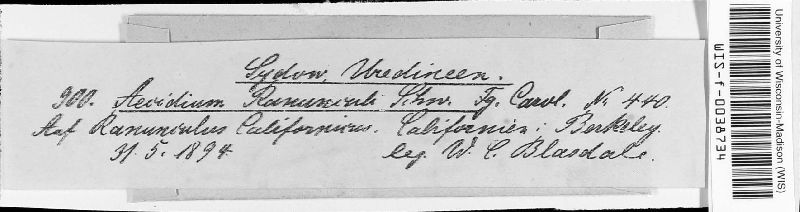 Sydow, Uredineen.
900. Aecidium Ranunculi Schw. Fg. Carol. N. 440.
Auf Ranunculus Californicus. Californien: Berkeley.
31. 5. 1894. leg. W. C. Blasdale.
University of Wisconsin-Madison (WIS)
WIS-f-0038734